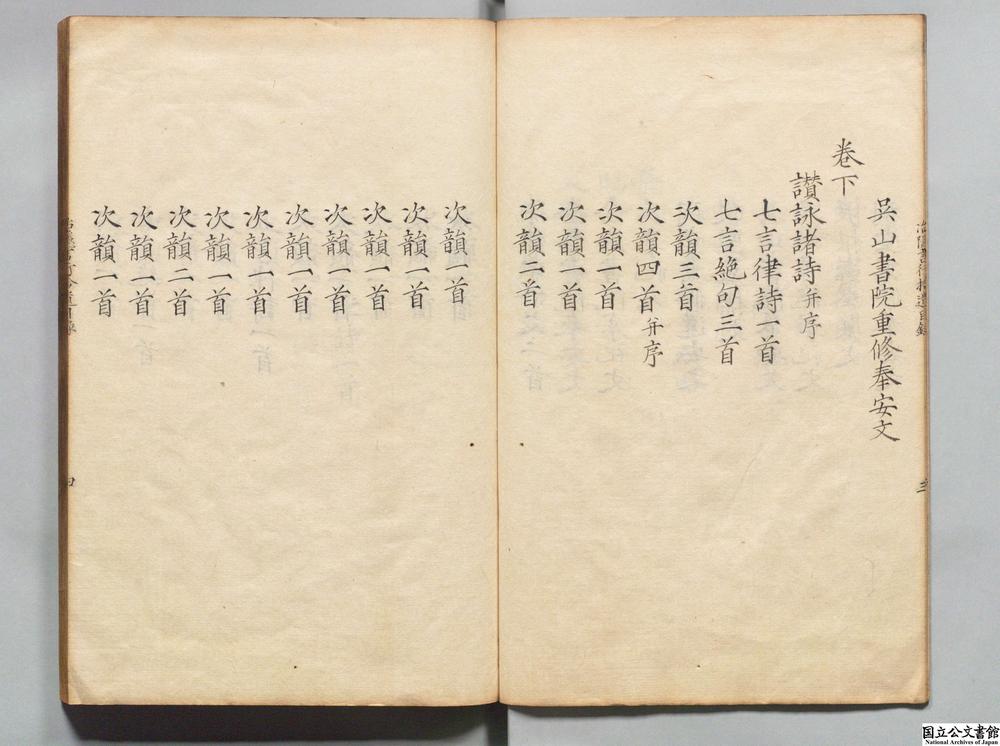 吳山書院重修奉安文
卷下
讃詠諸詩并序
七言律詩六首
七言絶句三首
次韻三首
次韻四首并序
次韻一首
次韻一首
次韻二首
三
次韻一首
次韻一首
次韻一首
次韻一首
次韻一首
次韻一首
次韻一首
次韻二首
次韻一首
次韻二首
四
国立公文書館
National Archives of Japan